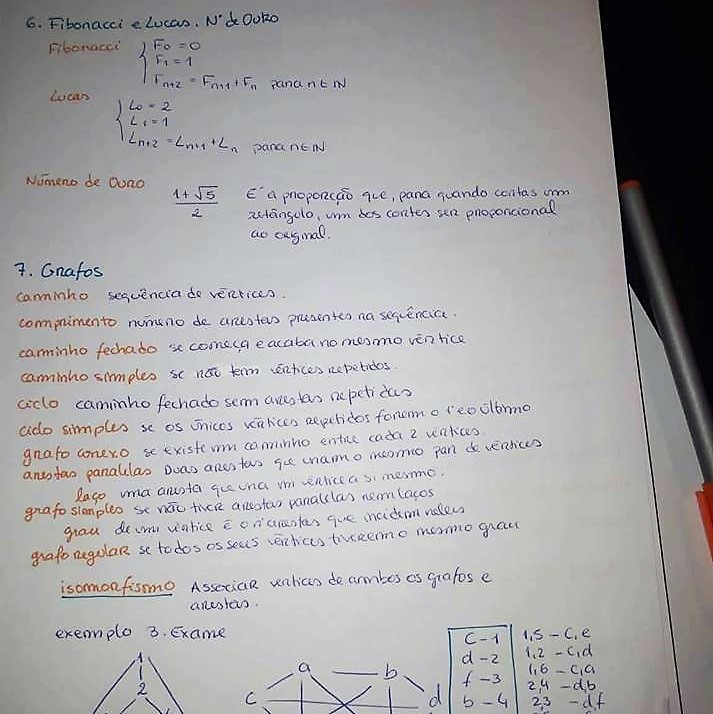 6. Fibonacci e Lucas. Nº de Ouro
Fibonacci { F0 = 0
F1 = 1
Fn+2 = Fn+1 + Fn para n ∈ IN
Lucas { L0 = 2
L1 = 1
Ln+2 = Ln+1 + Ln para n ∈ IN
Número de Ouro (1+√5)/2 É a proporção que, para quando cortas um
retângulo, um dos cortes ser proporcional
ao original.
7. Grafos
caminho sequência de vértices.
comprimento número de arestas presentes na sequência.
caminho fechado se começa e acaba no mesmo vértice
caminho simples se não tem vértices repetidos.
ciclo caminho fechado sem arestas repetidas
ciclo simples se os únicos vértices repetidos forem o 1º e o último
grafo conexo se existe um caminho entre cada 2 vértices.
arestas paralelas Duas arestas que unam o mesmo par de vértices
laço uma aresta que una um vértice a si mesmo.
grafo simples se não tiver arestas paralelas nem laços
grau de um vértice é o nº arestas que incidem neles
grafo regular se todos os seus vértices tiverem o mesmo grau
isomorfismo Associar vertices de ambos os grafos e
arestas.
exemplo 3. Exame
1
2
a b
c d
c - 1
d - 2
f - 3
b - 4
1,5 - c,e
1,2 - c,d
1,6 - c,a
2,4 - d,b
2,3 - d,f